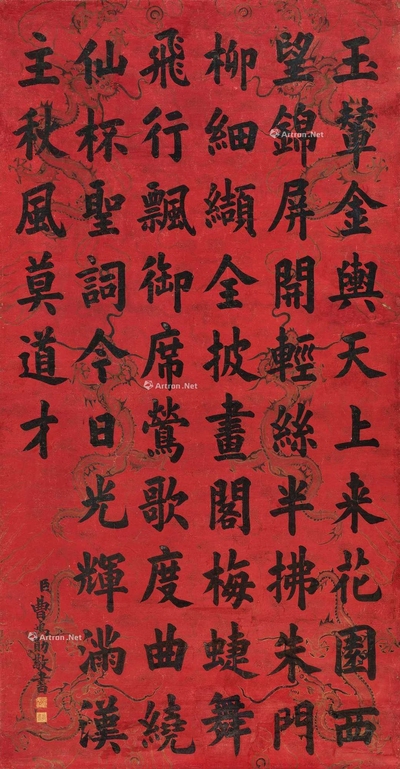 玉輦金輿天上来花園西
望錦屏開輕絲半拂朱門
柳細纈全披畫閣梅蜨舞
飛行飄御席鶯歌度曲繞
仙杯聖詞今日光輝滿漢
主秋風莫道才
臣曹敬書
Artron.Net
Artron.Net
Artron.Net